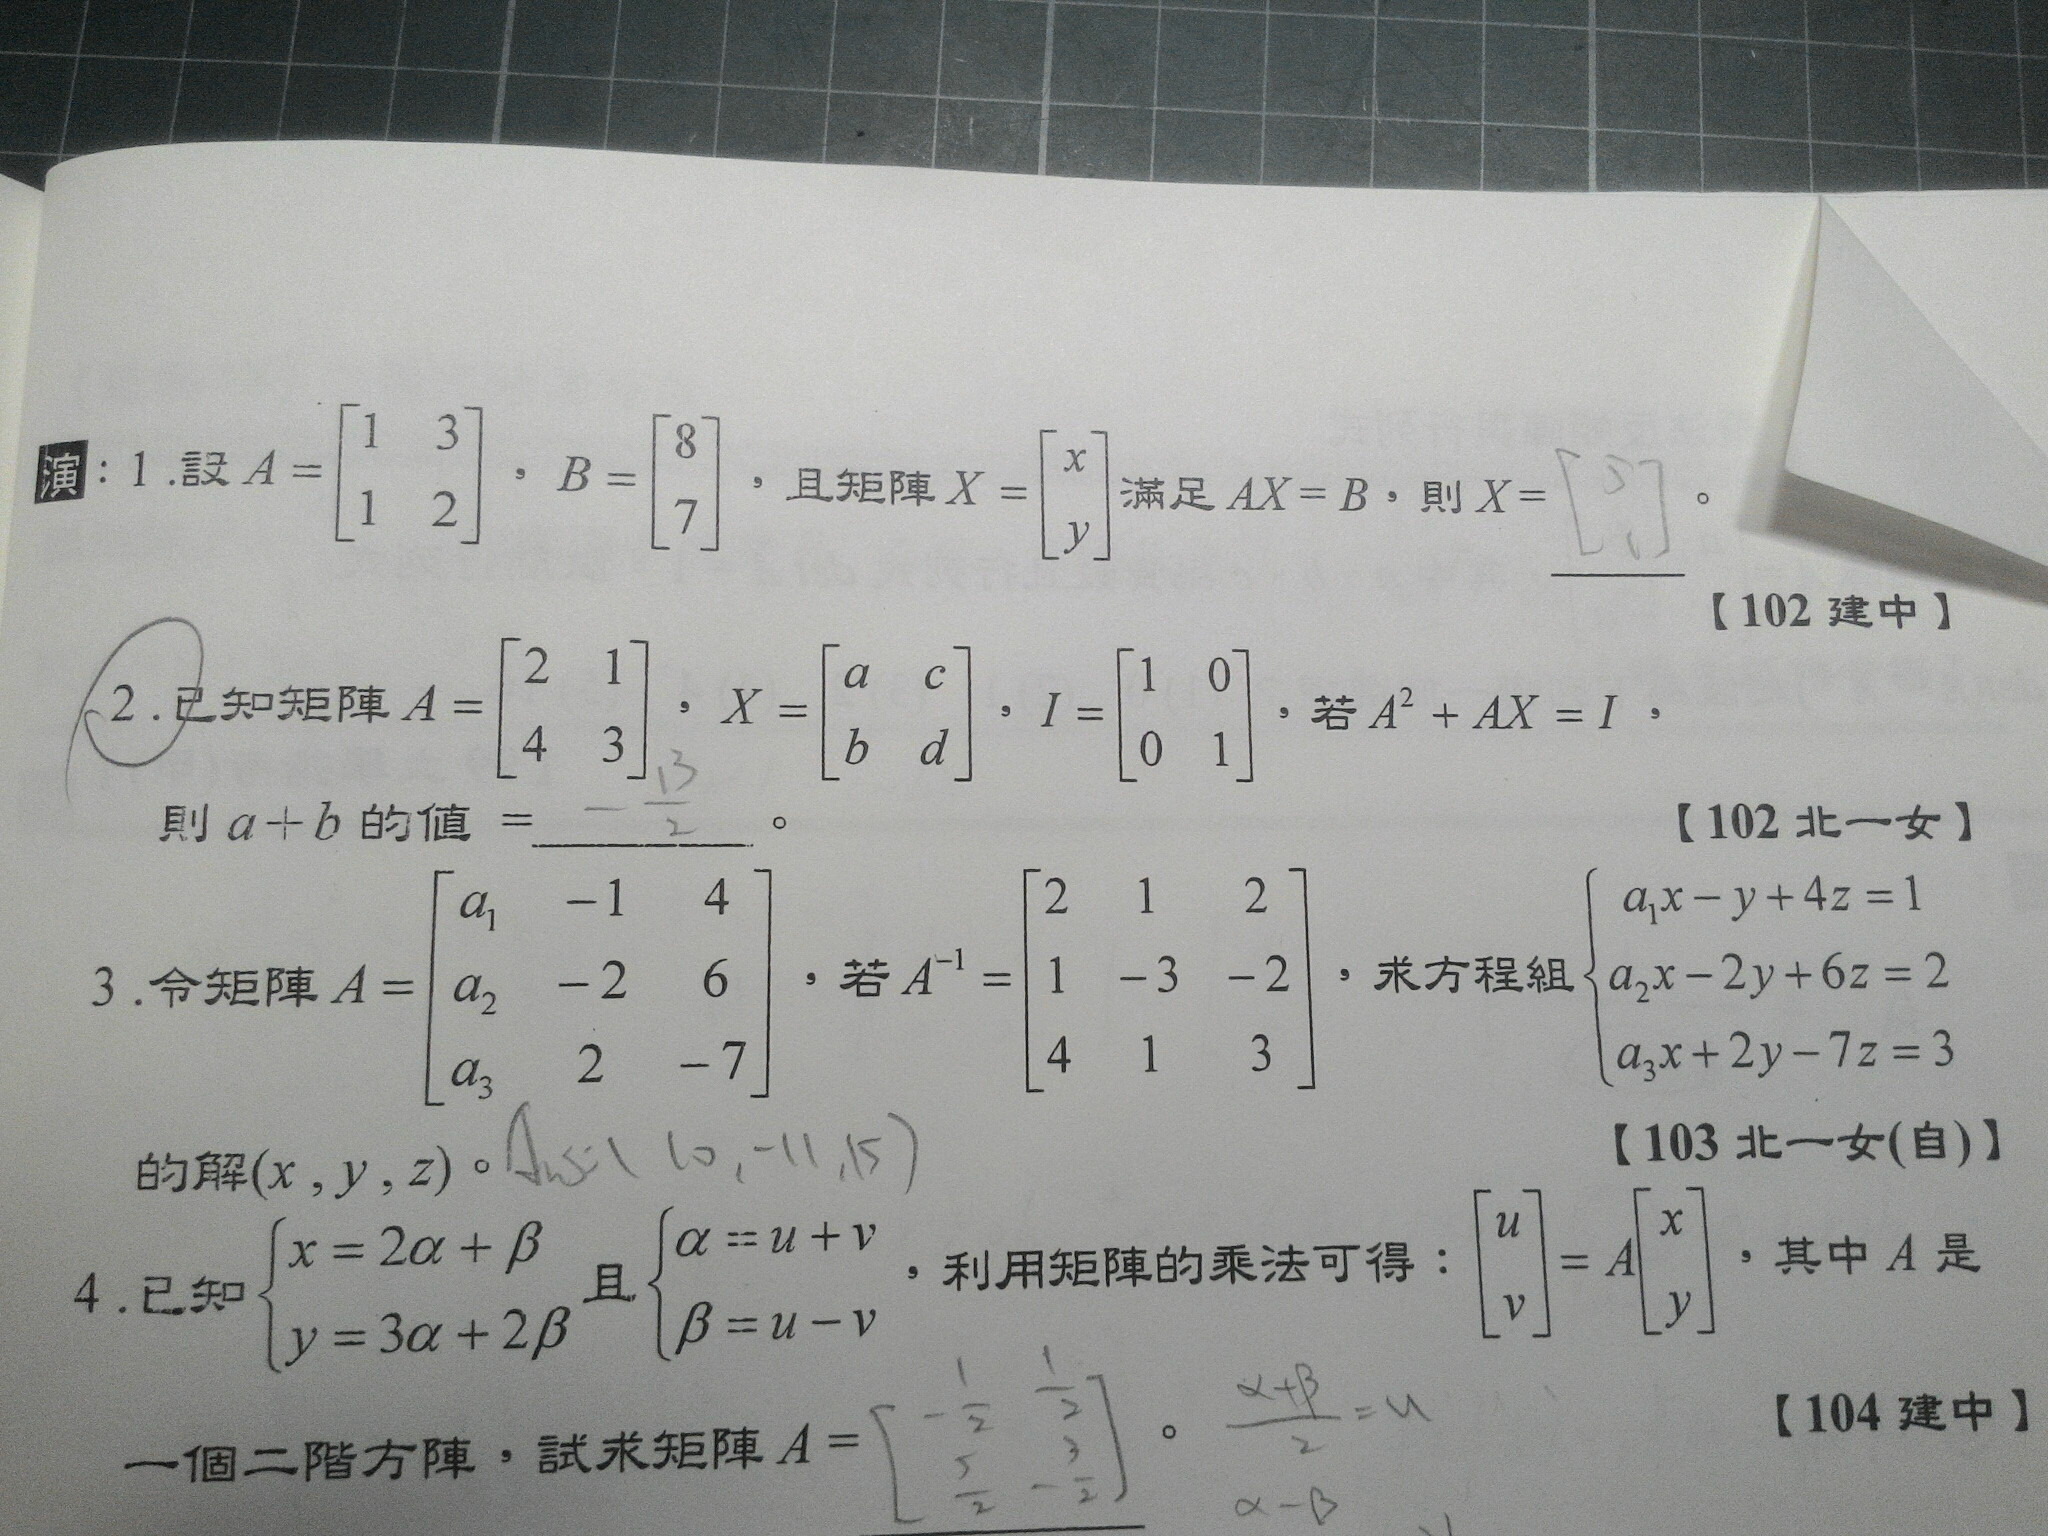 演:1.設 A = [1 3; 1 2],B = [8; 7],且矩陣 X = [x; y] 滿足 AX = B,則 X = [5; 1]。
【102 建中】
2.已知矩陣 A = [2 1; 4 3],X = [a c; b d],I = [1 0; 0 1],若 A² + AX = I,
則 a+b 的值 = -13/2。
【102 北一女】
3.令矩陣 A = [a₁ -1 4; a₂ -2 6; a₃ 2 -7],若 A⁻¹ = [2 1 2; 1 -3 -2; 4 1 3],求方程組 { a₁x - y + 4z = 1; a₂x - 2y + 6z = 2; a₃x + 2y - 7z = 3
的解(x , y , z)。Ans:(10,-11,15)
【103 北一女(自)】
4.已知 { x = 2α + β; y = 3α + 2β 且 { α = u + v; β = u - v,利用矩陣的乘法可得:[u; v] = A[x; y],其中 A 是
一個二階方陣,試求矩陣 A = [-1/2 1/2; 5/2 -3/2]。
α+β/2 = u
α-β
【104 建中】